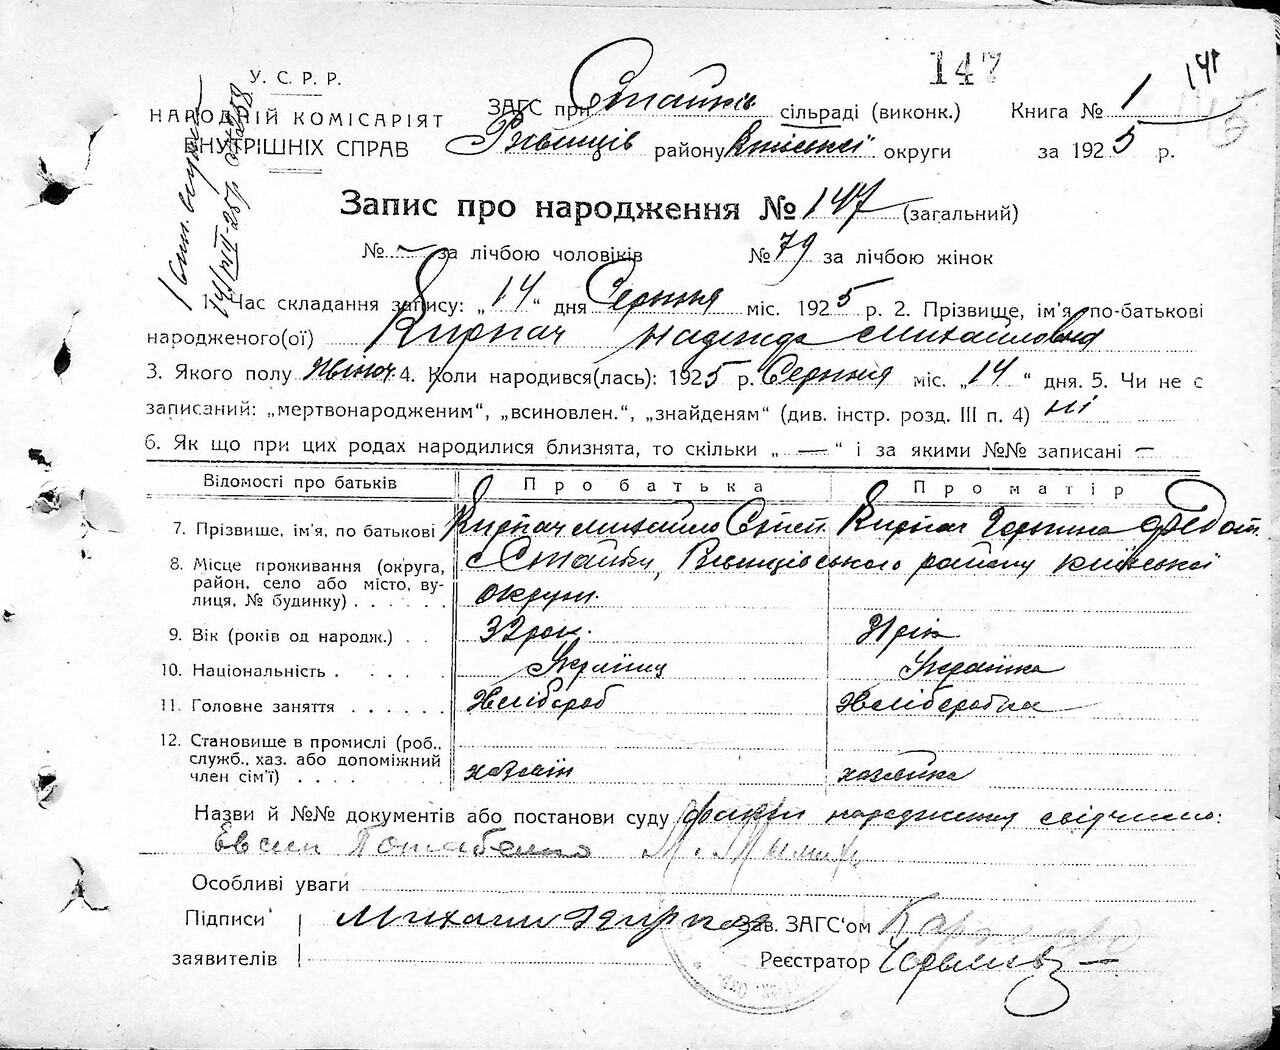 147
У. С. Р. Р.
НАРОДНІЙ КОМІСАРІЯТ
ВНУТРІШНІХ СПРАВ
ЗАГС при Стайків сільраді (виконк.) Книга № 1
Ржищів району Київської округи за 1925 р.
Запис про народження № 147 (загальний)
№ - за лічбою чоловіків № 79 за лічбою жінок
1. Час складання запису: „14“ дня Серпня міс. 1925 р. 2. Прізвище, ім'я, по-батькові
народженого(ої) Кирпач Надежда Михайловна
3. Якого полу жіноч. 4. Коли народився(лась): 1925 р. Серпня міс. „14“ дня. 5. Чи не є
записаний: „мертвонародженим“, „всиновлен.“, „знайденям“ (див. інстр. розд. III п. 4) ні
6. Як що при цих родах народилися близнята, то скільки „—“ і за якими №№ записані —
Відомості про батьків Про батька Про матір
7. Прізвище, ім'я, по батькові Кирпач Михайло Кирпач Горпина Федот.
8. Місце проживання (округа, с Стайки, Ржищівського району Київської
район, село або місто, ву-
лиця, № будинку) округи.
9. Вік (років од народж.) 32 рок. 31 рік
10. Національність Українець Українка
11. Головне заняття Хлібороб Хліборобка
12. Становище в промислі (роб.,
служб., хаз. або допоміжний
член сім'ї) хазяїн хазяйка
Назви й №№ документів або постанови суду факт народження свідчили:
Евсей Потабенко
Особливі уваги
Підписи Михаил Кирпач Зав. ЗАГС'ом
заявителів Реєстратор